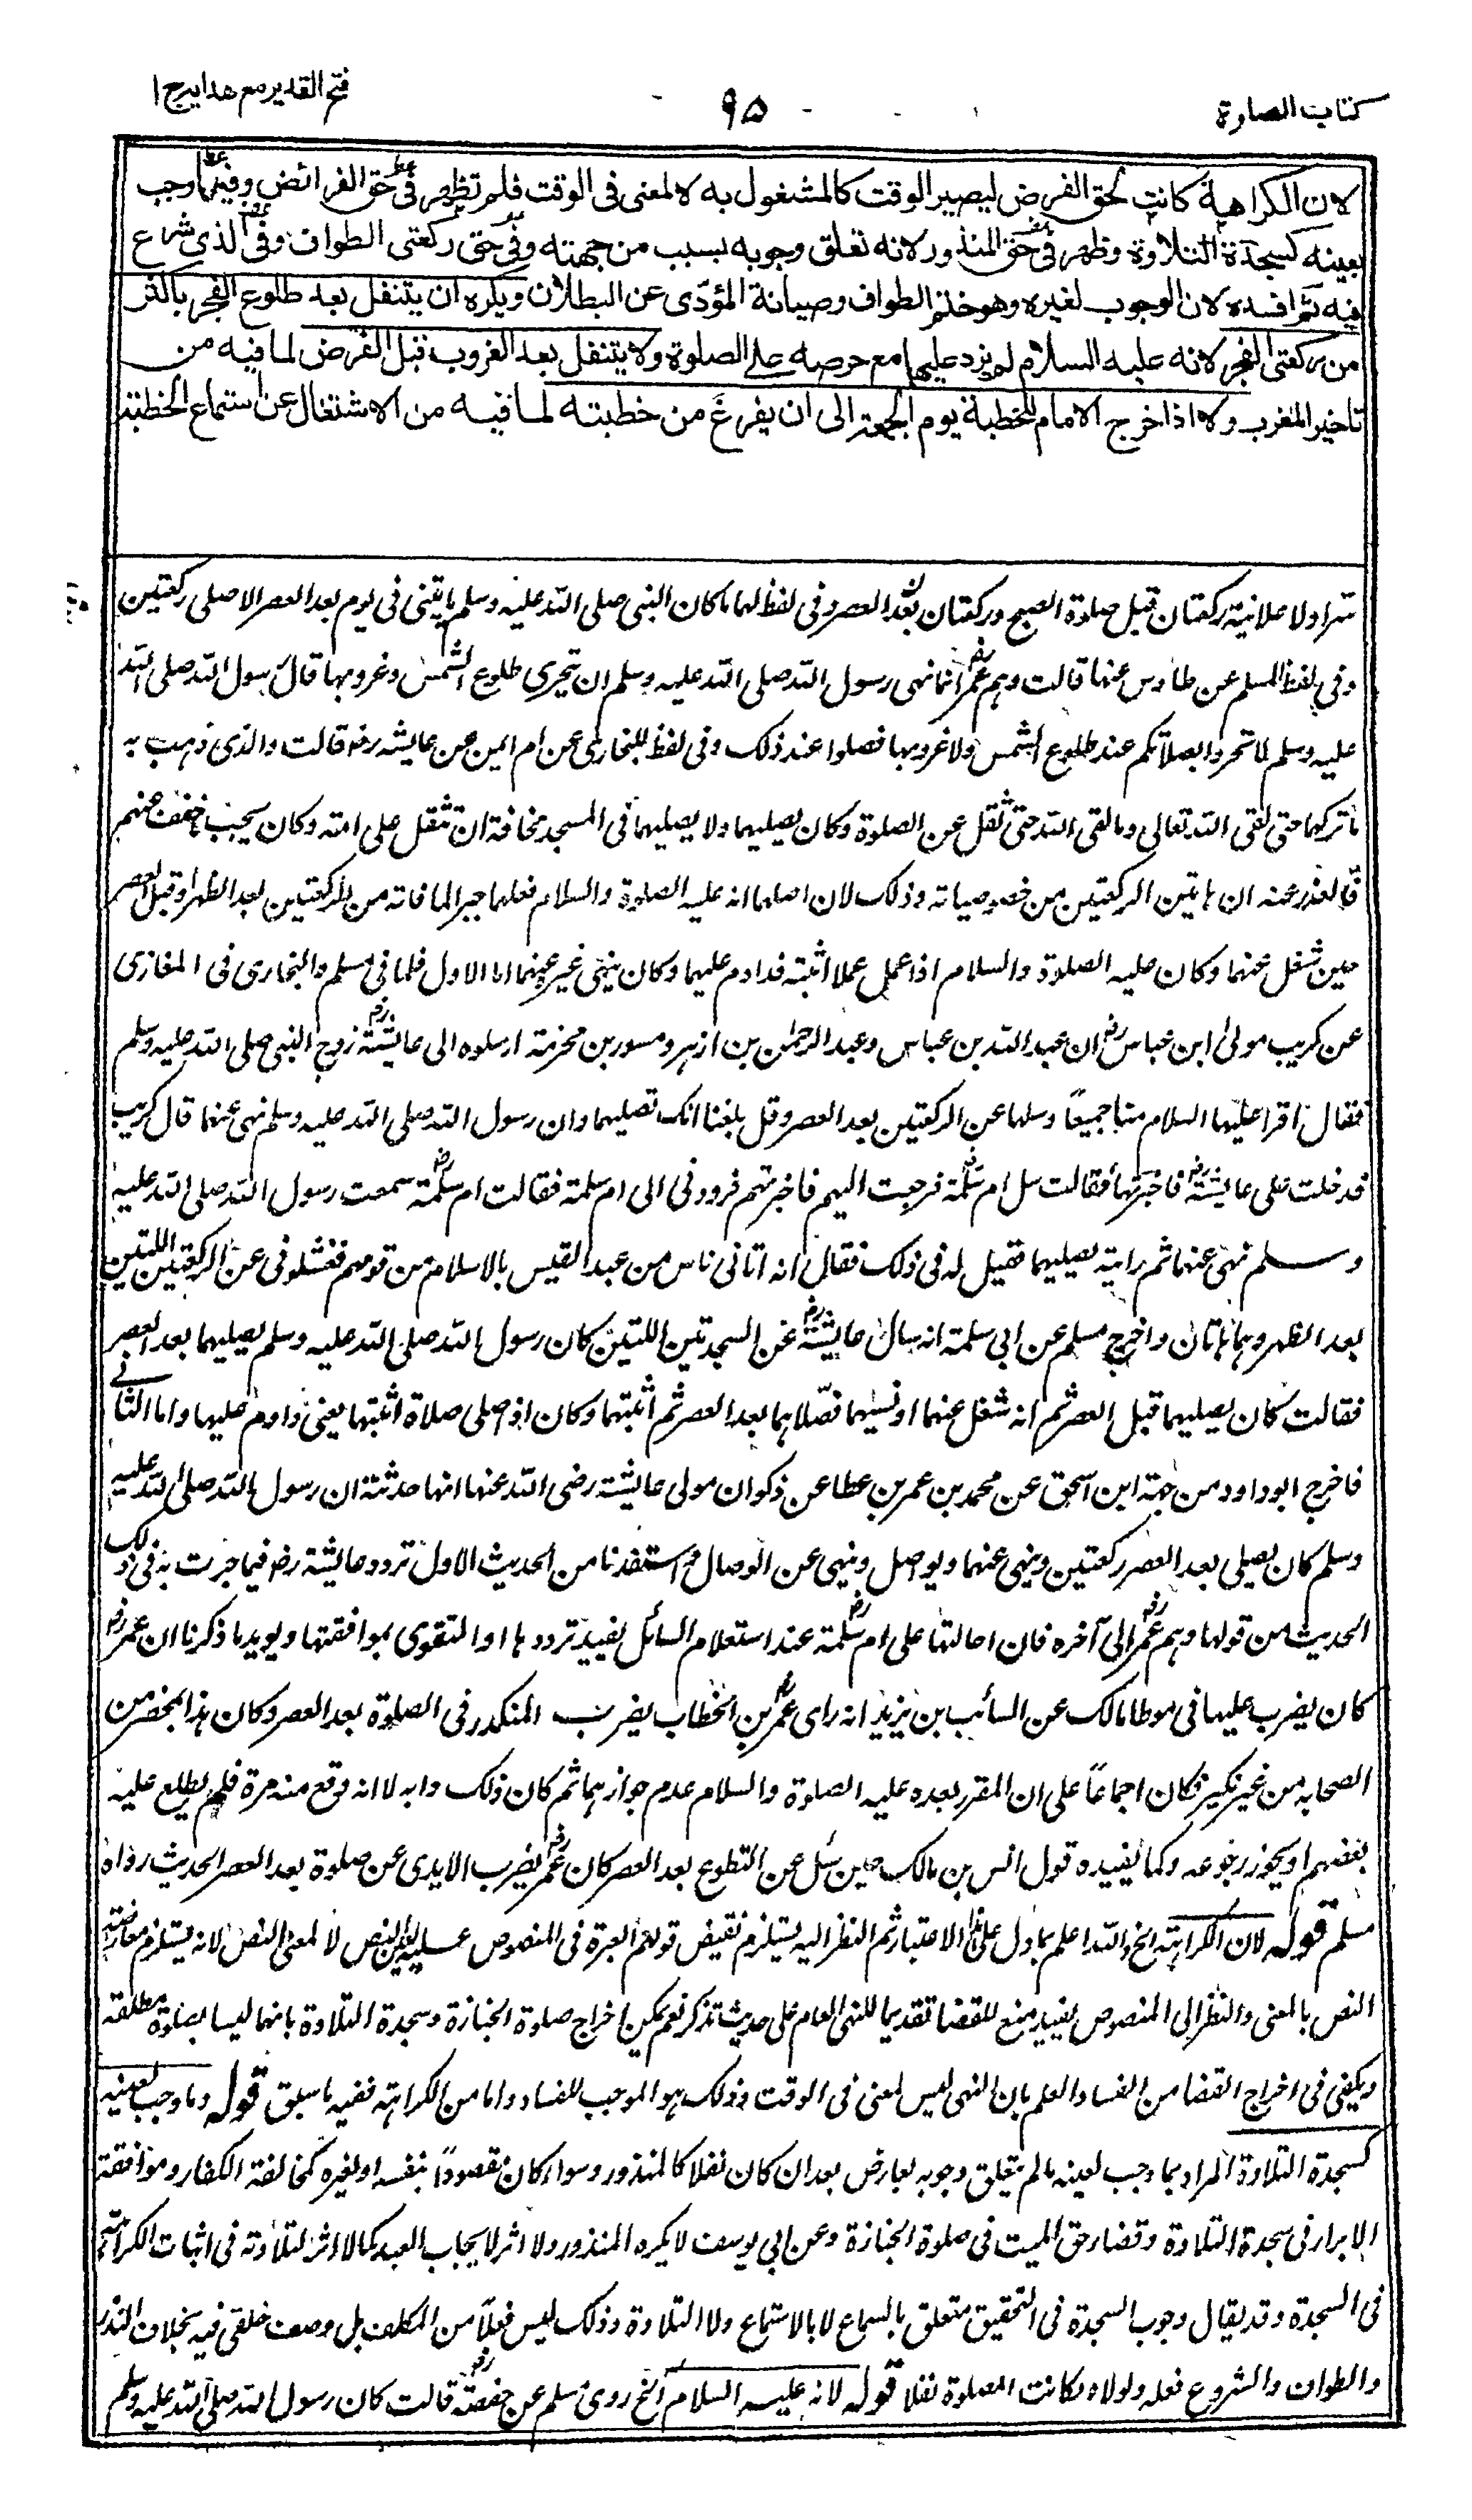 كتاب الصلوة
٩٥
فتح القدير مع هدايه ج ا
لان الكراهية كانت لحق الفرض ليصير الوقت كالمشغول به لا لمعنى فى الوقت فلم تظهر فى حق الفرائض وفيما وجب
بعينه كسجدة التلاوة وظهر فى حق المنذور لانه تعلق وجوبه بسبب من جهته وفى حق ركعتى الطواف وفى الذى شرع
فيه ثم افسده لان الوجوب لغيره وهو ختم الطواف وصيانة المؤدى عن البطلان ويكره ان يتنفل بعد طلوع الفجر باكثر
من ركعتى الفجر لانه عليه السلام لم يزد عليهما مع حرصه على الصلوة ولا يتنفل بعد الغروب قبل الفرض لما فيه من
تاخير المغرب ولا اذا خرج الامام للخطبة يوم الجمعة الى ان يفرغ من خطبته لما فيه من الاشتغال عن استماع الخطبة
سرا ولا علانية ركعتان قبل صلوة الصبح وركعتان بعد العصر وفى لفظ لهما ما كان النبى صلى الله عليه وسلم ياتينى فى يوم بعد العصر الا صلى ركعتين
وفى لفظ لمسلم عن طاوس عنها قالت وهم عمر رض انما نهى رسول الله صلى الله عليه وسلم ان يتحرى طلوع الشمس وغروبها قال رسول الله صلى الله
عليه وسلم لا تتحروا بصلاتكم عند طلوع الشمس ولا غروبها فصلوا عند ذلك وفى لفظ للبخارى عن ام ايمن عن عايشه رض قالت والذى ذهب به
ما تركهما حتى لقى الله تعالى وما لقى الله حتى ثقل عن الصلوة وكان يصليهما ولا يصليهما فى المسجد مخافة ان تثقل على امته وكان يحب ما خفف عنهم
فالعذر عنه ان هاتين الركعتين من خصوصياته وذلك لان اصلهما انه عليه الصلوة والسلام فعلهما جبرا لما فاته من الركعتين بعد الظهر او قبل العصر
حين شغل عنهما وكان عليه الصلوة والسلام اذا عمل عملا اثبته فداوم عليهما وكان ينهى غيره عنهما اما الاول فلما فى مسلم والبخارى فى المغازى
عن كريب مولى ابن عباس رض ان عبد الله بن عباس وعبد الرحمن بن ازهر ومسور بن مخرمة ارسلوه الى عايشة رض زوج النبى صلى الله عليه وسلم
فقال اقرا عليها السلام منا جميعا وسلها عن الركعتين بعد العصر وقل بلغنا انك تصليهما وان رسول الله صلى الله عليه وسلم نهى عنهما قال كريب
فدخلت على عايشة رض فاخبرتها فقالت سل ام سلمة رض فرجعت اليهم فاخبرتهم فردونى الى ام سلمة فقالت ام سلمة رض سمعت رسول الله صلى الله عليه
وسلم نهى عنهما ثم رايته يصليهما فقيل له فى ذلك فقال انه اتانى ناس من عبد القيس بالاسلام من قومهم فشغلونى عن الركعتين اللتين
بعد الظهر وهما هاتان واخرج مسلم عن ابى سلمة انه سال عايشة رض عن السجدتين اللتين كان رسول الله صلى الله عليه وسلم يصليهما بعد العصر
فقالت كان يصليهما قبل العصر ثم انه شغل عنهما او نسيهما فصلاهما بعد العصر ثم اثبتهما وكان اذا صلى صلاة اثبتها يعنى داوم عليها واما الثانى
فاخرج ابو داود من جهة ابن اسحق عن محمد بن عمر بن عطا عن ذكوان مولى عايشة رضى الله عنها انها حدثته ان رسول الله صلى الله عليه
وسلم كان يصلى بعد العصر ركعتين وينهى عنهما ويواصل وينهى عن الوصال وقد استفدنا من الحديث الاول تردد عايشة رض فيما جزمت به فى ذلك
الحديث من قولها وهم عمر رض الى آخره فان احالتها على ام سلمة رض عند استعلام السائل يفيد ترددها او التقوى بموافقتها ويويد ما ذكرنا ان عمر رض
كان يضرب عليهما فى موطا مالك عن السائب بن يزيد انه راى عمر رض بن الخطاب يضرب المنكدر فى الصلوة بعد العصر وكان هذا بمحضر من
الصحابه من غير نكير فكان اجماعا على ان المقرر بعده عليه الصلوة والسلام عدم جوازهما ثم كان ذلك دابه لا انه وقع منه مرة فلم يطلع عليه
بعضهم او يجوز رجوعه وكما يفيده قول انس بن مالك حين سئل عن التطوع بعد العصر كان عمر رض يضرب الايدى عن صلوة بعد العصر الحديث رواه
مسلم قوله لان الكراهة الخ والله اعلم بما دل على الاعتبار ثم النظر اليه يستلزم نقيض قولهم العبرة فى المنصوص عليه لعين النص لا لمعنى النص لانه يستلزم معارضة
النص بالمعنى والنظر الى المنصوص يفيد منع القضا تقديما للنهى العام على حديث تذكر نعم يمكن اخراج صلوة الجنازة وسجدة التلاوة بانهما ليسا بصلوة مطلقة
ويكفى فى اخراج القضا من الفساد العلم بان النهى ليس لمعنى فى الوقت وذلك هو الموجب للفساد واما من الكراهة ففيه ما سبق قوله وما وجب لعينه
كسجدة التلاوة المراد بما وجب لعينه ما لم يتعلق وجوبه بعارض بعد ان كان نفلا كالمنذور وسواء كان مقصودا بنفسه او لغيره كمخالفة الكفار وموافقة
الابرار فى سجدة التلاوة وقضاء حق الميت فى صلوة الجنازة وعن ابى يوسف لا يكره المنذور ولا اثر لايجاب العبد كما لا اثر لتلاوته فى اثبات الكراهة
فى السجدة وقد يقال وجوب السجدة فى التحقيق متعلق بالسماع لا بالاستماع ولا التلاوة وذلك ليس فعلا من المكلف بل وصف خلقى فيه بخلاف النذر
والطواف والشروع فعله ولولاه لكانت الصلوة نفلا قوله لانه عليه السلام الخ روى مسلم عن حفصة رض قالت كان رسول الله صلى الله عليه وسلم